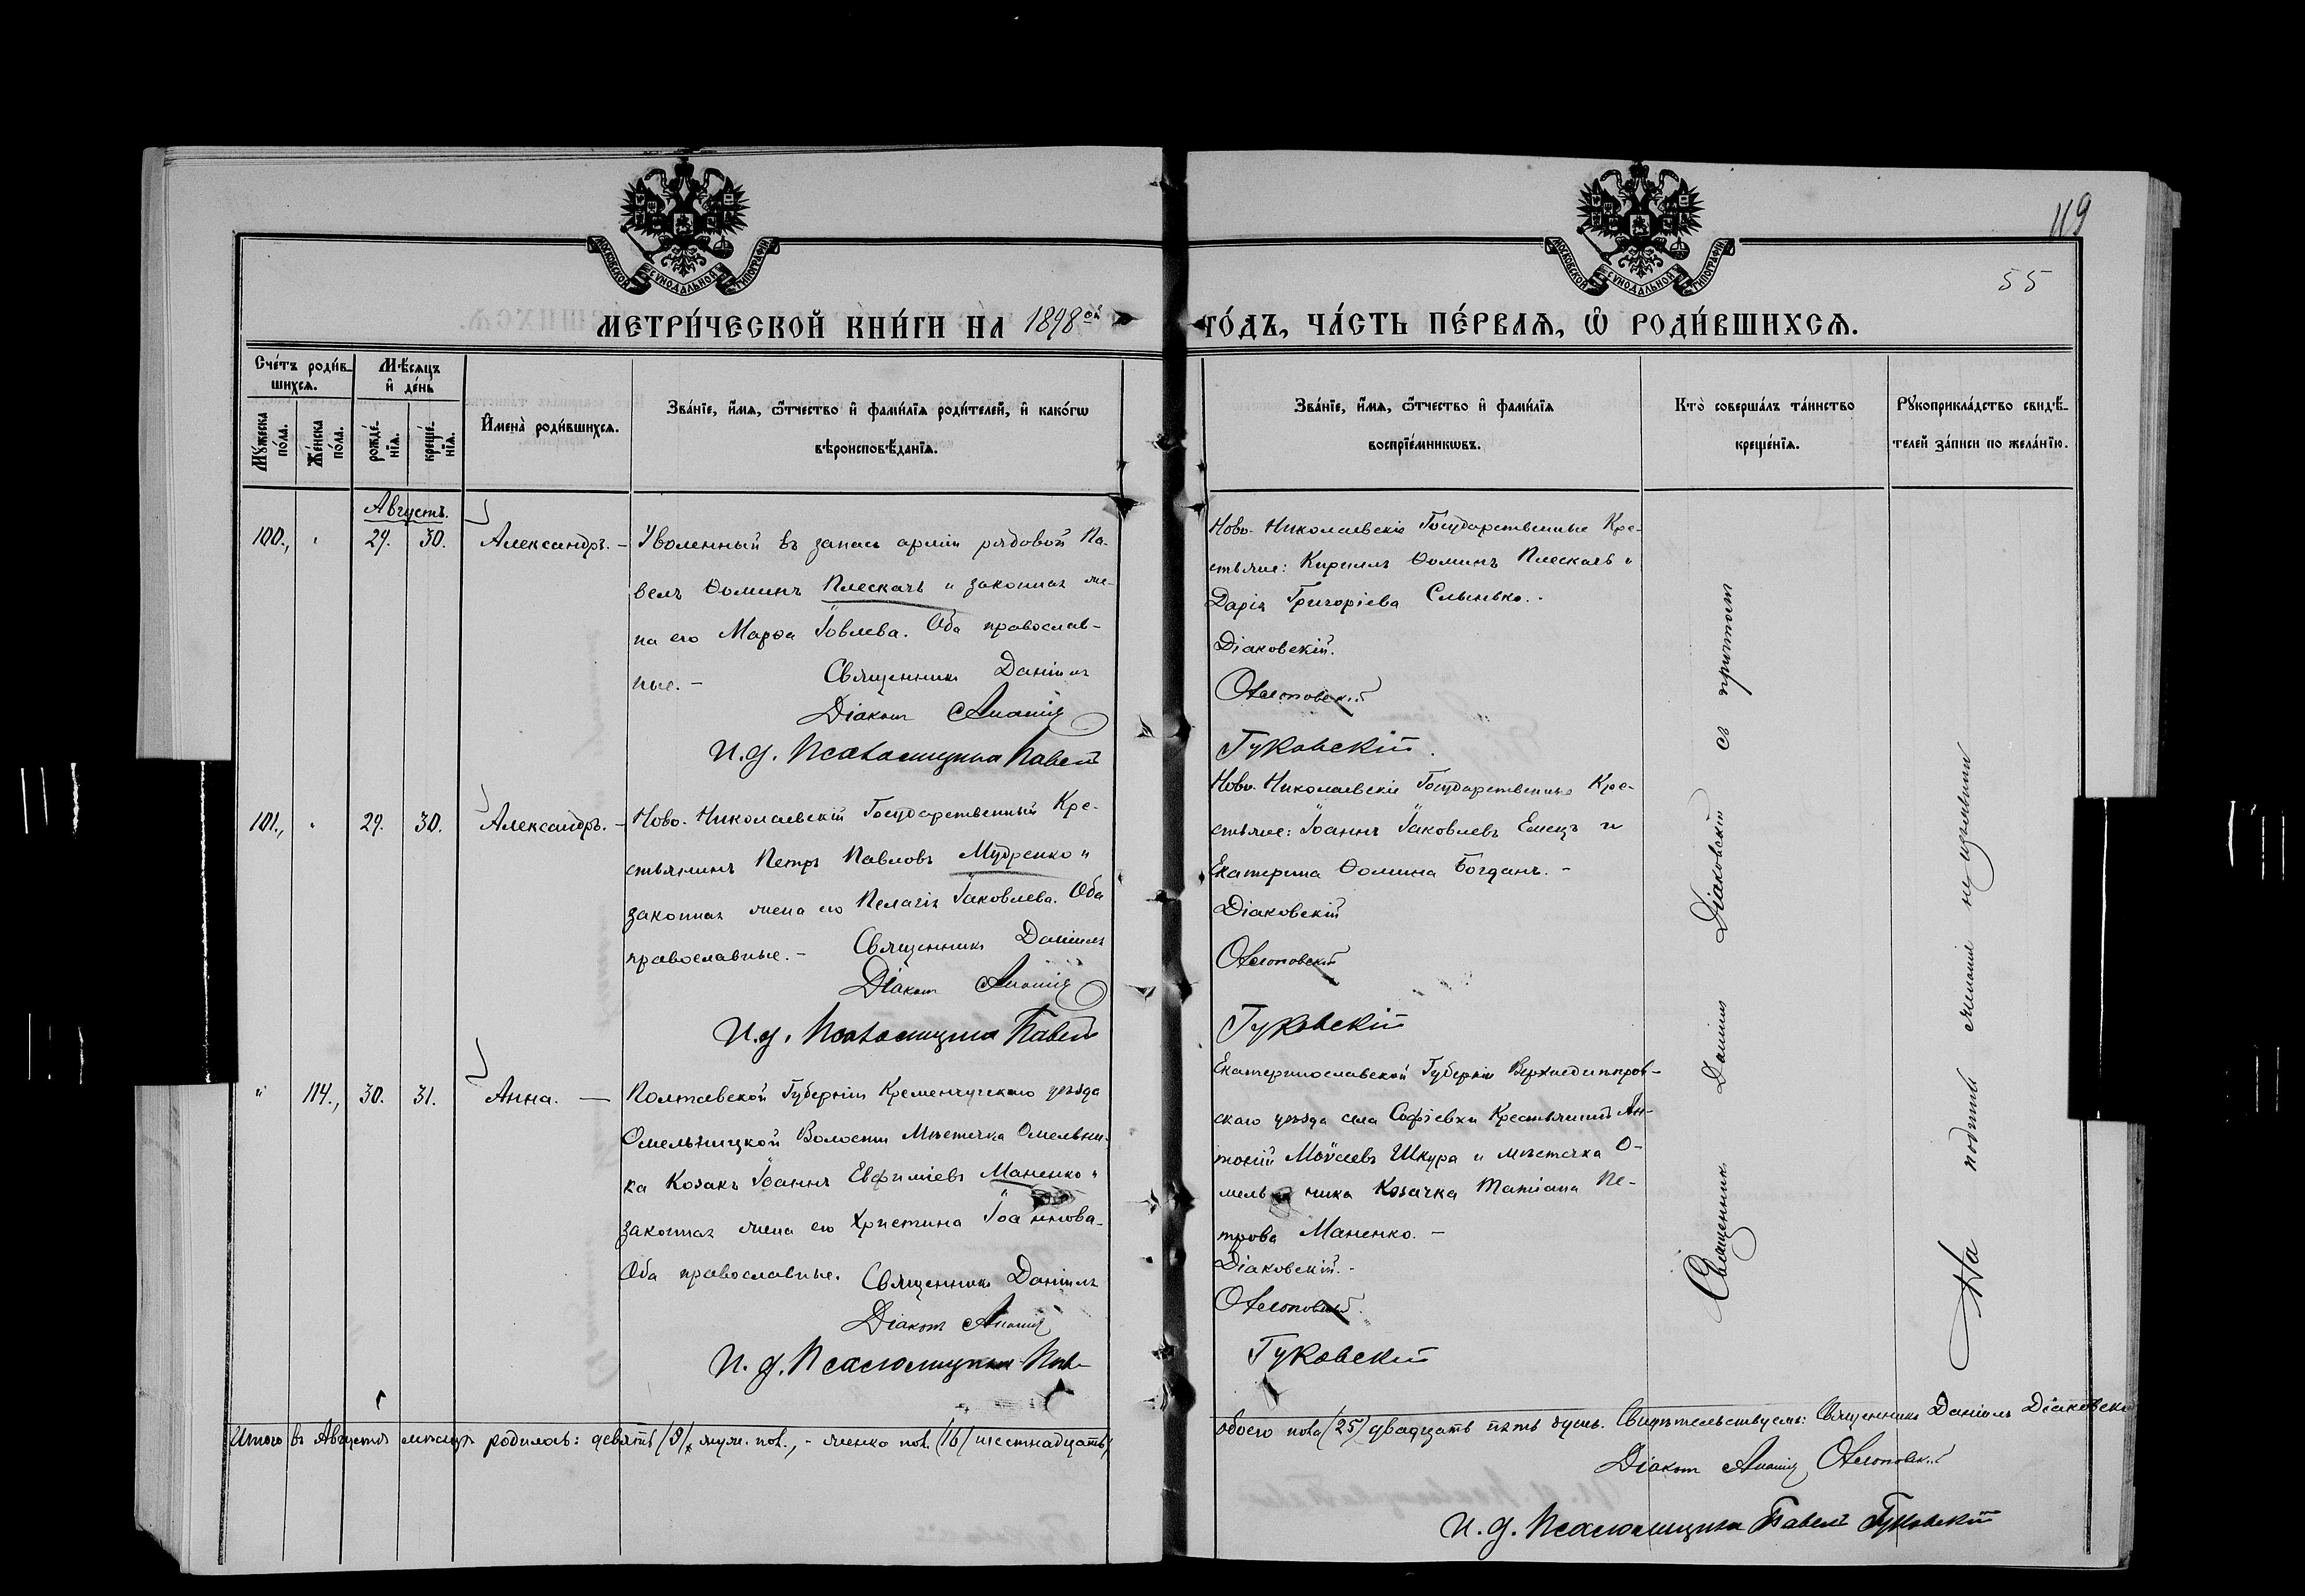 119
55
МОСКОВСКОЙ СѴНОДАЛЬНОЙ ТИПОГРАФІИ
МОСКОВСКОЙ СѴНОДАЛЬНОЙ ТИПОГРАФІИ
МЕТРИ́ЧЕСКОЙ КНИ́ГИ НА 1898ой
ГО́ДЪ, ЧА́СТЬ ПЕ́РВАѦ, Ѡ҆ РОДИ́ВШИХСѦ.
Сче́тъ роди́в-
шихсѧ.
Мѣ́сѧцъ
и҆ де́нь
Мꙋ́жеска
по́ла.
Же́нска
по́ла.
рожде́-
нїѧ.
креще́-
нїѧ.
И҆мена̀ роди́вшихсѧ.
Зва́нїе, и҆́мѧ, ѻ҆́тчество и҆ фами́лїѧ роди́телей, и҆ како́гѡ
вѣроисповѣ́данїѧ.
Зва́нїе, и҆́мѧ, ѻ҆́тчество и҆ фами́лїѧ
воспрїе́мникѡвъ.
Кто̀ соверша́лъ та́инство
креще́нїѧ.
Рꙋкоприкла́дство свидѣ́-
телей за́писи по жела́нїю.
Августъ.
100., 29. 30. Александръ. –
Уволенный въ запасъ арміи рядовой Па-
велъ Ѳоминъ Плескачъ и законная же-
на его Марѳа Іовлева. Оба православ-
ные. – Священникъ Даніилъ
Діаконъ Ананій
И.д. Псаломщика Павелъ
Ново-Николаевскіе Государственные Кре-
стьяне: Кириллъ Ѳоминъ Плескачъ и
Дарія Григоріева Слынько. -
Діаковскій.
Гуковскій.
101., 29. 30. Александръ. –
Ново-Николаевскій Государственный Кре-
стьянинъ Петръ Павловъ Мудренко и
законная жена его Пелагія Іаковлева. Оба
православные. – Священникъ Даніилъ
Діаконъ Ананій
И.д. Псаломщика Павелъ
Ново-Николаевскіе Государственные Кре-
стьяне: Іоаннъ Іаковлевъ Емецъ и
Екатерина Ѳомина Богданъ. –
Діаковскій
Гуковскій
" 114., 30. 31. Анна. —
Полтавской Губерніи Кременчугскаго уѣзда
Омельницкой Волости Мѣстечка Омельни-
ка Козакъ Іоаннъ Евфиміевъ Маненко и
законная жена его Христина Іоаннова.
Оба православные. Священникъ Даніилъ
Діаконъ Ананій
И.д. Псаломщика Пав-
Екатеринославской Губерніи Верхнеднѣпров-
скаго уѣзда села Софіевки Крестьянинъ Ан-
тоній Моѵсеевъ Шкура и мѣстечка О-
мельника Козачка Татіана Пе-
трова Маненко. –
Діаковскій. -
Гуковскій
Священникъ Даніилъ Діаковскій съ причтомъ
На подпись желанія не изъявили
Итого въ Августѣ мѣсяцѣ родилось: девять /9/ муж. пол., - женска пол. /16/ шестнадцать,
обоего пола /25/ двадцать пять душъ. Свидѣтельствуемъ: Священникъ Даніилъ Діаковскій
Діаконъ Ананій
И.д. Псаломщика Павелъ Гуковскій